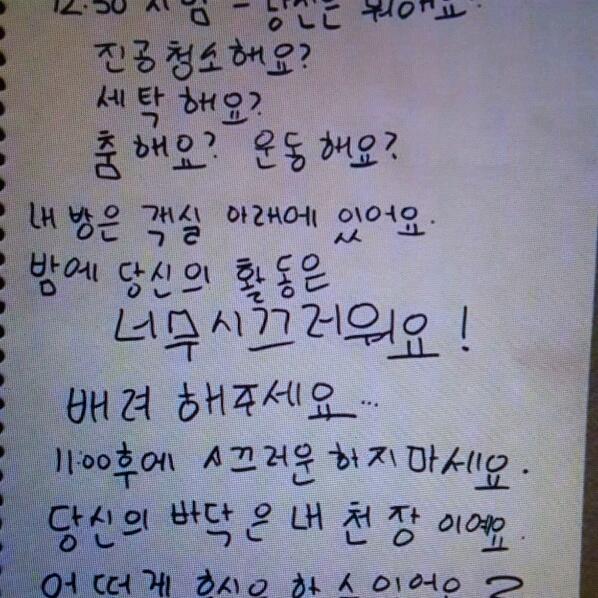 12:30 시 밤 - 당신은 뭐해요?
진공청소해요?
세탁해요?
춤해요? 운동해요?
내 방은 객실 아래에 있어요.
밤에 당신의 활동은
너무시끄러워요!
배려 해주세요...
11:00후에 시끄러운 하지마세요.
당신의 바닥은 내 천장 이예요.
어떠게 할 수 이어요?